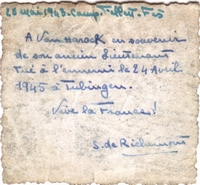 28 mai 1943. Camp. Fès
A Van Marock en souvenir
de son ancien Lieutenant
tué à l'ennemi le 24 Avril
1945 à Tubingen.
Vive la France!
S. de Richemont